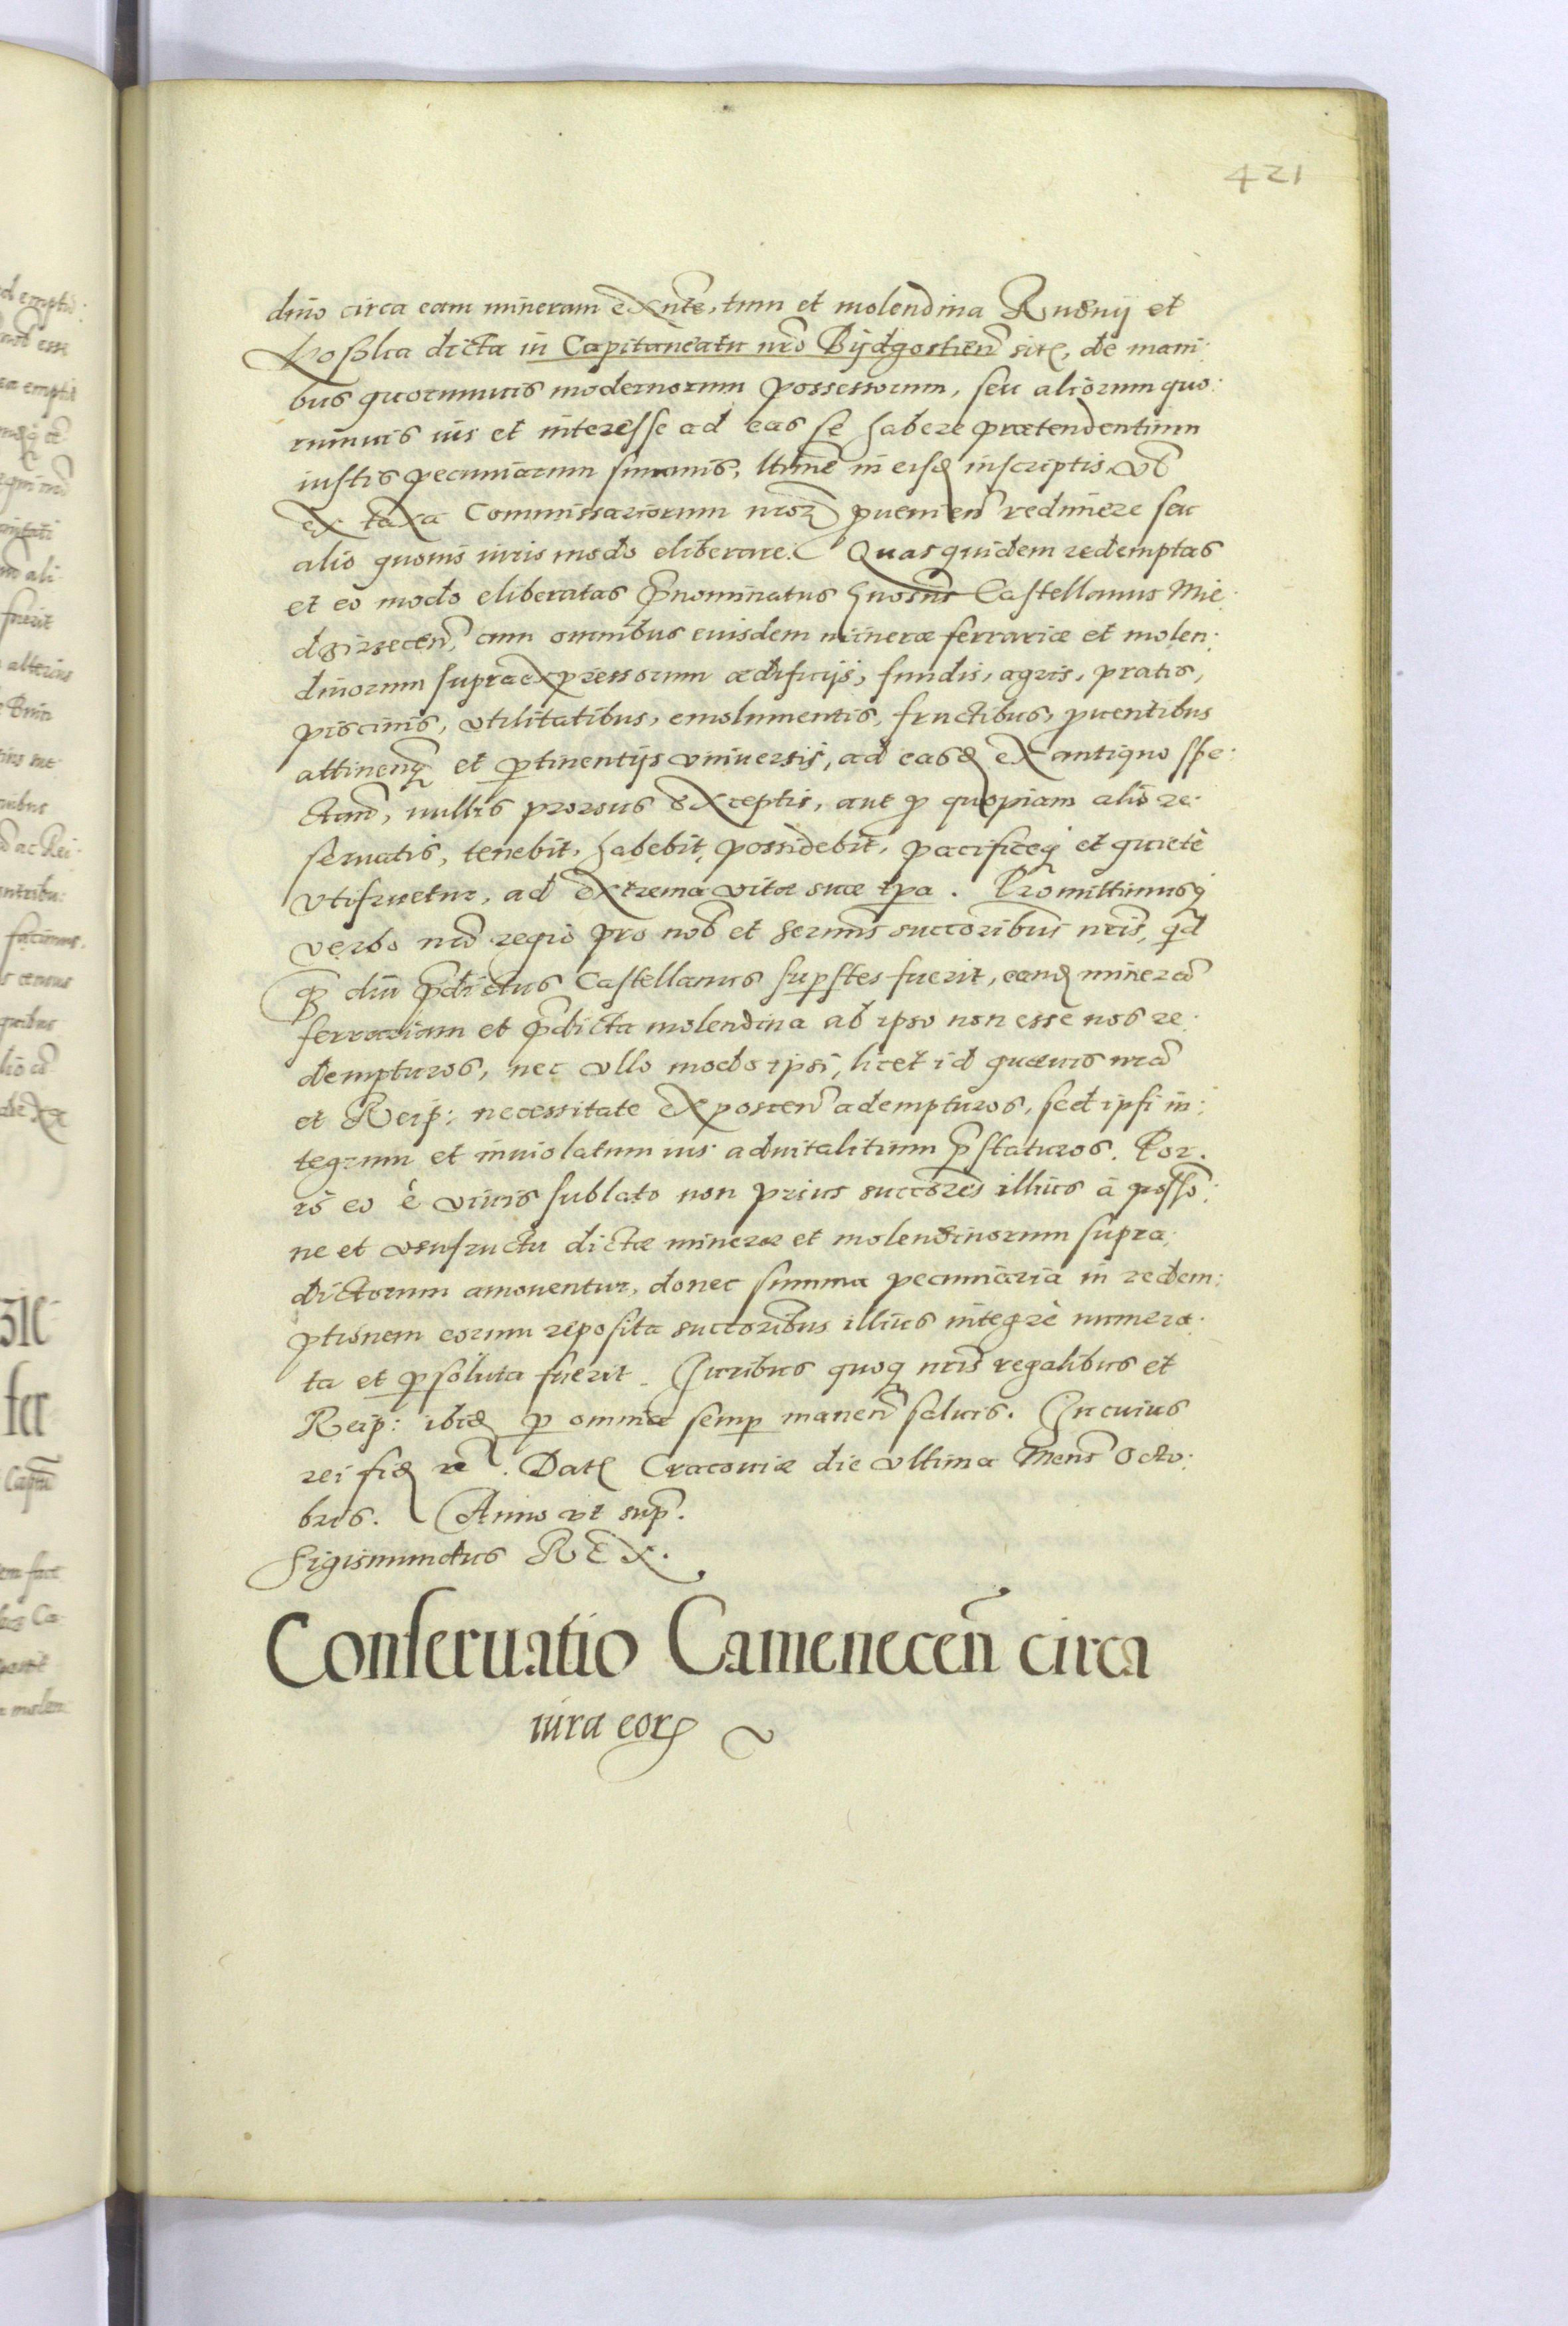 421
dino circa eam mineram exñte, tum et molendina Rudnij et
Kosolka dicta in Capitaneatu nrõ Bydgostieñ sitę, de mani:
bus quorumuis modernorum possessorum, seu aliorum quo:
rumuis ius et interesse ad eas se habere prætendentium
iustis pecuniarum summis, ltĩme in eisd inscriptis,
ex taxa Commissariorum nrõr pueniеñ redimere seu
alio quouis iuris modo eliberare. Quas quidem redemptas
et eo modo eliberatas p̃nominatus Castellanus Mie:
dzirzeceñ, cum omnibus euisdem mineræ ferrariæ et molen:
dinorum supraexpressorum ædificijs, fundis, agris, pratis,
piscinis, vtilitatibus, emolumentis, fructibus, puentibus
attinenq et ptinentijs vniuersis, ad easd ex antiquo spe:
ctañ, nullis prorsus exceptis, aut p quopiam alio re:
seruatis, tenebit, habebit, possidebit, pacificeq et quietè
vtifruetur, ad extrema vitæ suæ tpa. Promittimusq
verbo nrõ regio pro nob et sermis successoribus nris, qd
q̃ diu p̃dictus Castellanus supstes fuerit, eand minerã
ferrariam et p̃dicta molendina ab ipso non esse nos re:
dempturos, nec vllo modo ipsi, licet id quæuis nrã
et Reip: necessitate exposceñ adempturos, sed ipsi in:
tegrum et inuiolatum ius aduitalitium p̃staturos. Por:
rò eo è viuis sublato non prius succores illius à possõ:
ne et vsufructu dictæ mineræ et molendinorum supra:
dictorum amouentur, donec summa pecuniaria in redem:
ptionem eorum reposita succoribus illius integrè numera:
ta et psoluta fuerit. Iuribus quoq nris regalibus et
Reip: ibid p omnia semp maneñ saluis. In cuius
rei fid rẽ. Datę Cracouiæ die vltima Mens Octo:
bris. Anno vt sup.
Sigismundus REX.
Conseruatio Camenecen̄ circa
iura eorꝝ